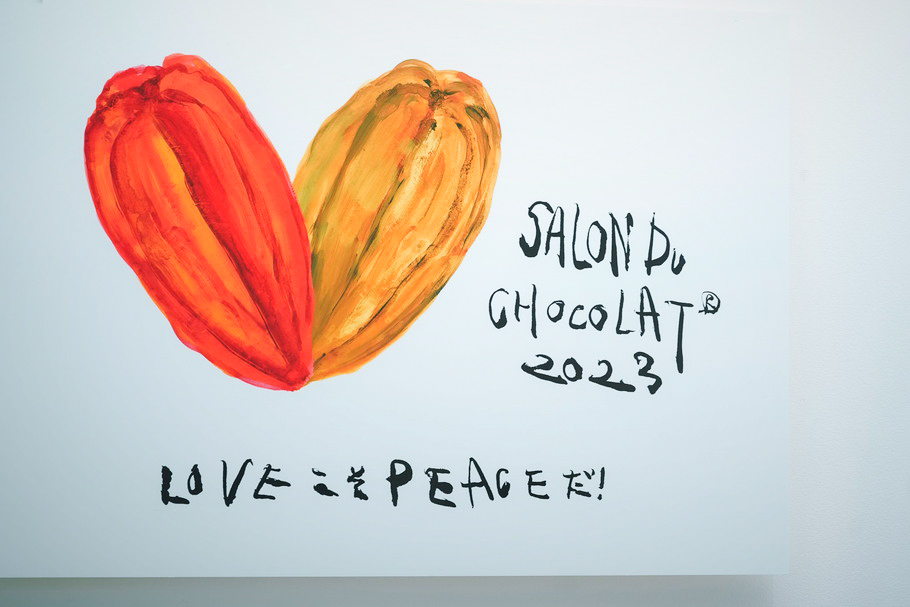 SALON DU
CHOCOLAT®
2023
LOVE こそ PEACE だ!